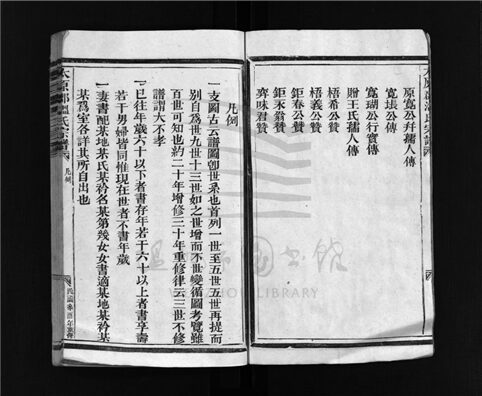 原寬公弁孺人傳
寬塭公傳
寬瑚公行實傳
贈王氏孺人傳
梧希公贊
梧義公贊
鉅春公贊
鉅翁贊
齊味君贊
凡例
一支圖古云譜圖卽世系也首列一世至五世五世再提而
別自爲世九世十三世如之世增而不世變循圖考覽雖
百世可知也約二十年增修三十年重修律云三世不修
譜謂大不孝
一已往年歲六十以下者書存年若干六十以上者書享壽
若干男婦皆同惟現在世者不書年歲
一妻書配某地某氏某矜名某第幾女女書適某地某矜某
某爲室各詳其所自出也
太原郡溫氏宗譜
凡例
民國
LIBRARY